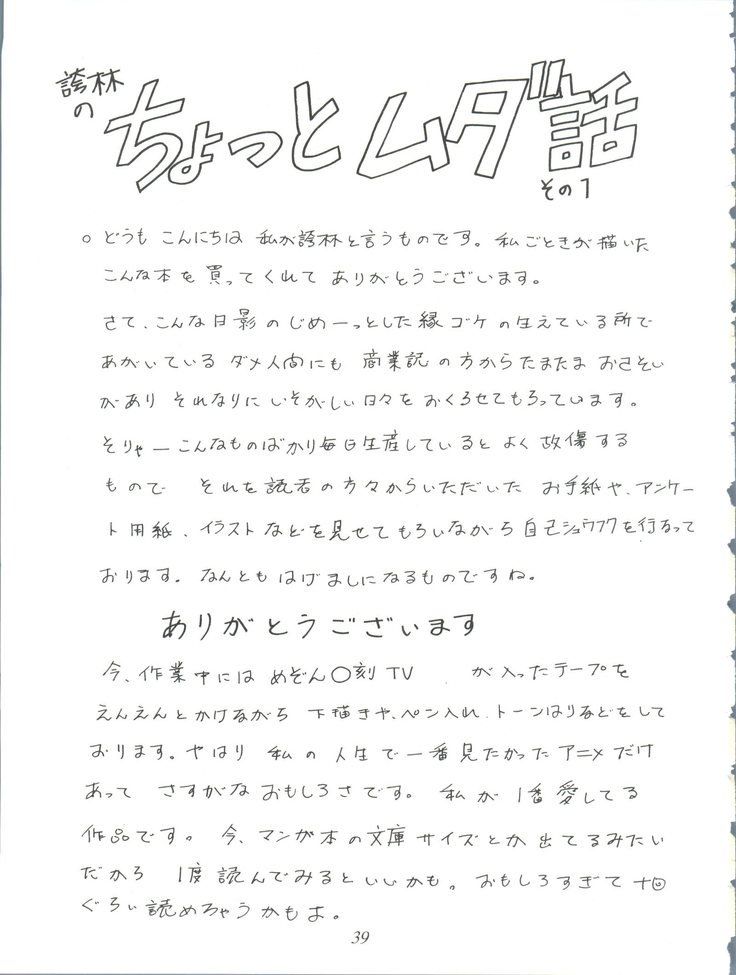 誇林
の
ちょっとムダ話
その1
○ どうも こんにちは 私が誇林と言うものです。私ごときが描いた
こんな本を買ってくれて ありがとうございます。
さて、こんな日影のじめーっとした縁ゴケの生えている所で
あがいているダメ人間にも 商業誌の方からたまたま おさそい
があり それなりに いそがしい日々を おくらせてもらっています。
そりゃーこんなものばかり毎日生産していると よく故傷する
もので それを読者の方々からいただいた お手紙や、アンケー
ト用紙、イラストなどを見せてもらいながら自己ショウフクを行なって
おります。なんとも はげましになるものですね。
ありがとうございます
今、作業中には めぞん〇刻TV が入ったテープを
えんえんとかけながら 下描きや、ペン入れ、トーンはりなどをして
おります。やはり 私の人生で一番見たかったアニメだけ
あって さすがなおもしろさです。私が1番愛してる
作品です。今、マンガ本の文庫サイズとか出てるみたい
だから 1度読んでみるといいかも。おもしろすぎて十回
ぐらい読めちゃうかもよ。
39